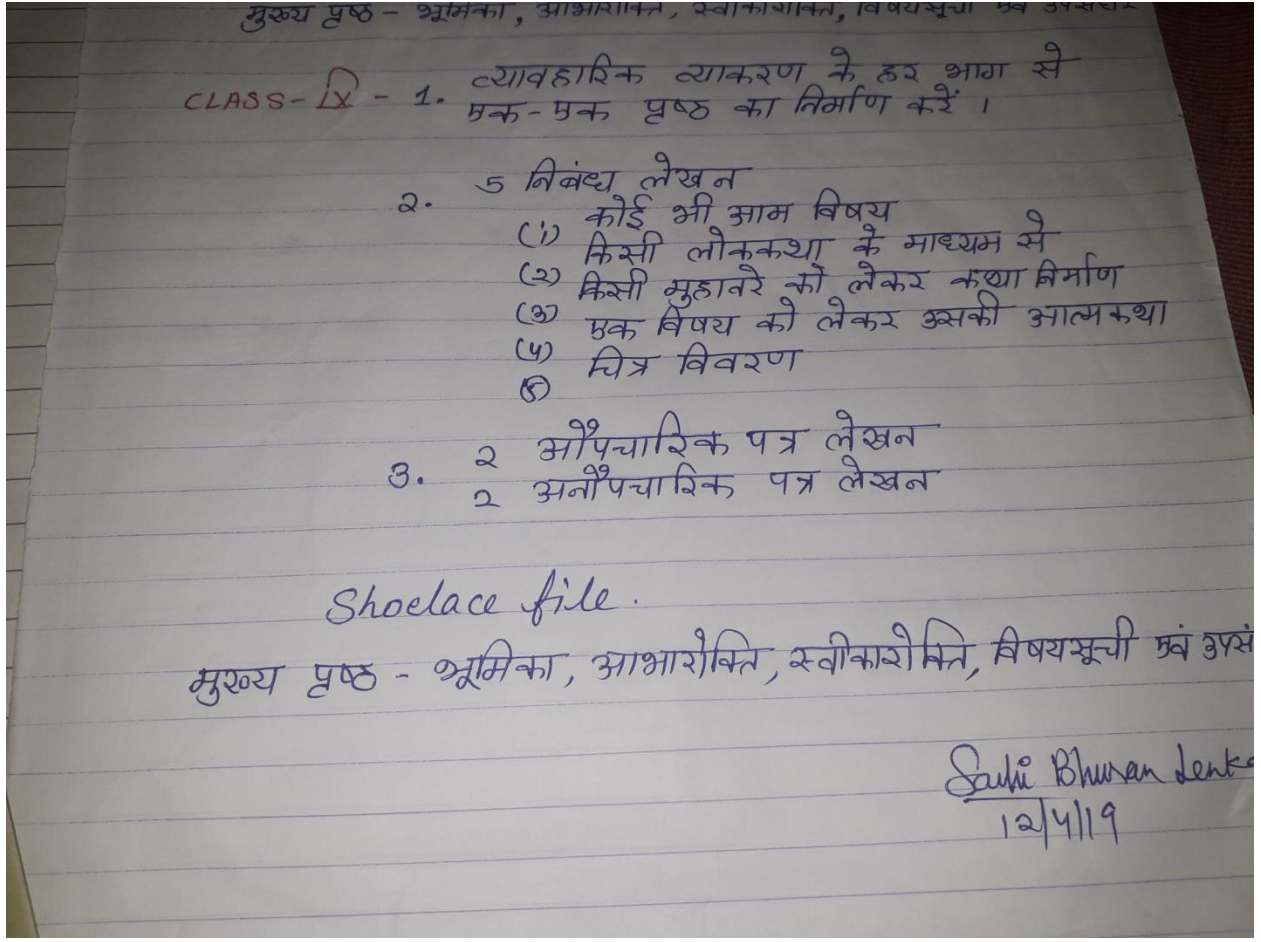 मुख्य पृष्ठ - भूमिका, आभारोक्ति, स्वीकारोक्ति, विषयसूची एवं उपसंहार
CLASS - IX - 1. व्यावहारिक व्याकरण के हर भाग से
एक-एक पृष्ठ का निर्माण करें ।
2. 5 निबंध लेखन
(1) कोई भी आम विषय
(2) किसी लोककथा के माध्यम से
(3) किसी मुहावरे को लेकर कथा निर्माण
(4) एक विषय को लेकर उसकी आत्मकथा
(5) चित्र विवरण
3. 2 औपचारिक पत्र लेखन
2 अनौपचारिक पत्र लेखन
Shoelace file.
मुख्य पृष्ठ - भूमिका, आभारोक्ति, स्वीकारोक्ति, विषयसूची एवं उपसं
Bhusan Lenka
12/4/19